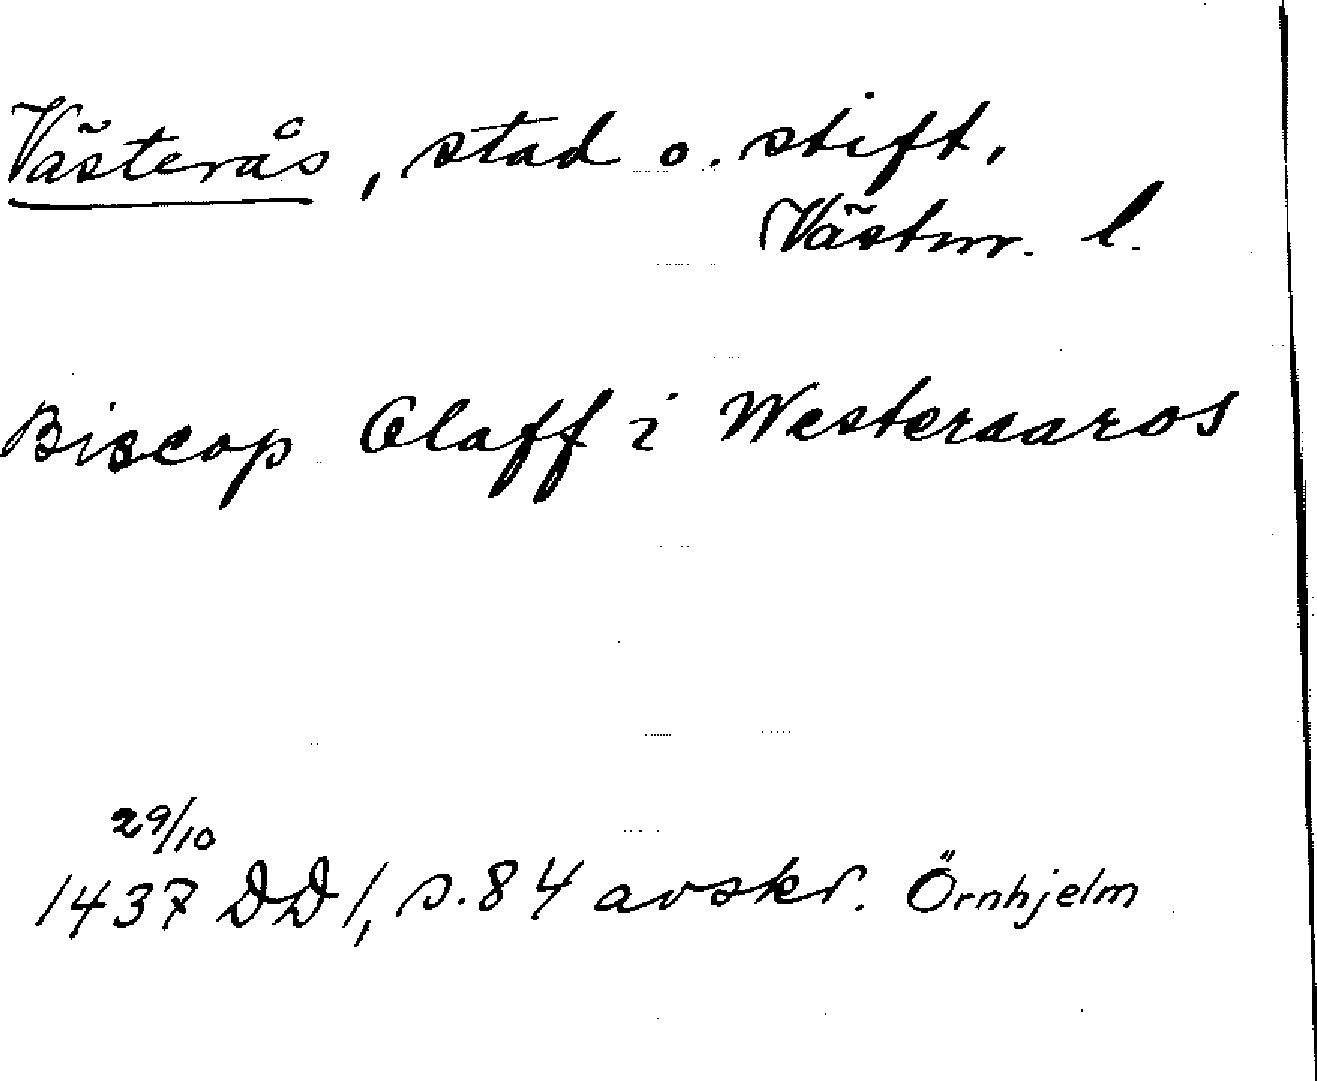 Västerås, stad o. stift,
Västm. l.
Biscop Olaff i Westeraaros
29/10
1437 DD 1, s. 84 avskr. Örnhjelm